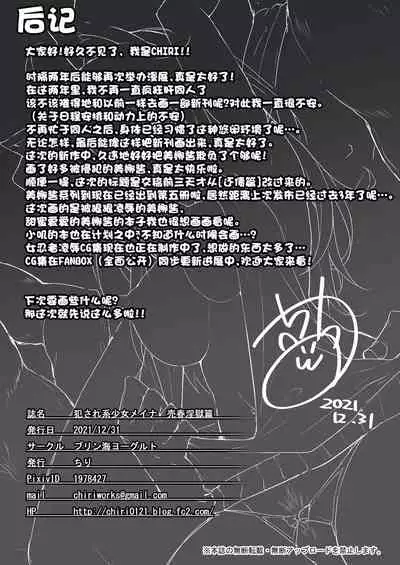 后记
大家好!好久不见了，我是CHIRI!!
时隔两年后能够再次举办漫展,真是太好了!
在这两年里,我不再一直疯狂肝同人了
该不该难得地和以前一样去画一部新刊呢?对此我一直很不安。
(关于日程安排和动力上的不安)
不再忙于同人之后,身体已经习惯了这种悠闲环境了呢…。
无论怎样,最后能像这样把新刊画出来,真是太好了。
这次的新作中,久违地好好把美柳酱欺负了个够呢!
画了好多被侵犯的美柳酱,真是太快乐啦。
美柳酱系列到现在已经出到第五册啦,居然距离上次发布已经过去3年了呢…。
这次画的是被狠狠凌辱的美柳酱,
甜蜜爱爱的美柳酱的本子我也很想画画看呢。
女忍者凌辱CG集现在也正在制作中了,想做的东西太多了…
CG集在FANBOX（全面公开）同步更新进展中,欢迎大家来看!
下次要画些什么呢?
那这次就先说这么多啦!!
2021.
12.31
誌名 犯され系少女メイナ 売春淫獄篇
発行日 2021/12/31
サークル プリン海ヨーグルト
発行 ちり
PixivID 1978427
mail chiriworks@gmail.com
HP http://chiri0121.blog.fc2.com/
※本誌の無断転載・無断アップロードを禁止します。